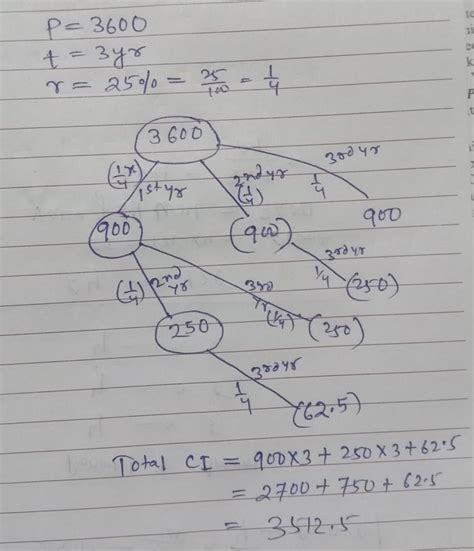 P = 3600
t = 3yr
r = 25% = 25/100 = 1/4
3600
(1/4 x) 1st yr
2nd yr (1/4)
3rd yr 1/4
900
(900)
900
(1/4) 2nd yr
3rd yr (1/4)
3rd yr 1/4
(250)
250
(250)
3rd yr 1/4
(62.5)
Total CI = 900x3 + 250x3 + 62.5
= 2700 + 750 + 62.5
= 3512.5